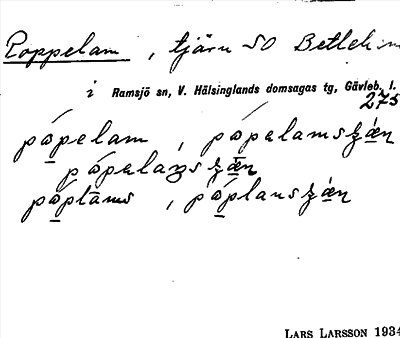 Poppelam, tjärn SO Betlehem
i Ramsjö sn, V. Hälsinglands domsagas tg, Gävleb. l.
275
pópelam, pópelamsʒæ̀n
pópelamsʒæ̀n
póplams, póplansʒæ̀n
LARS LARSSON 1934